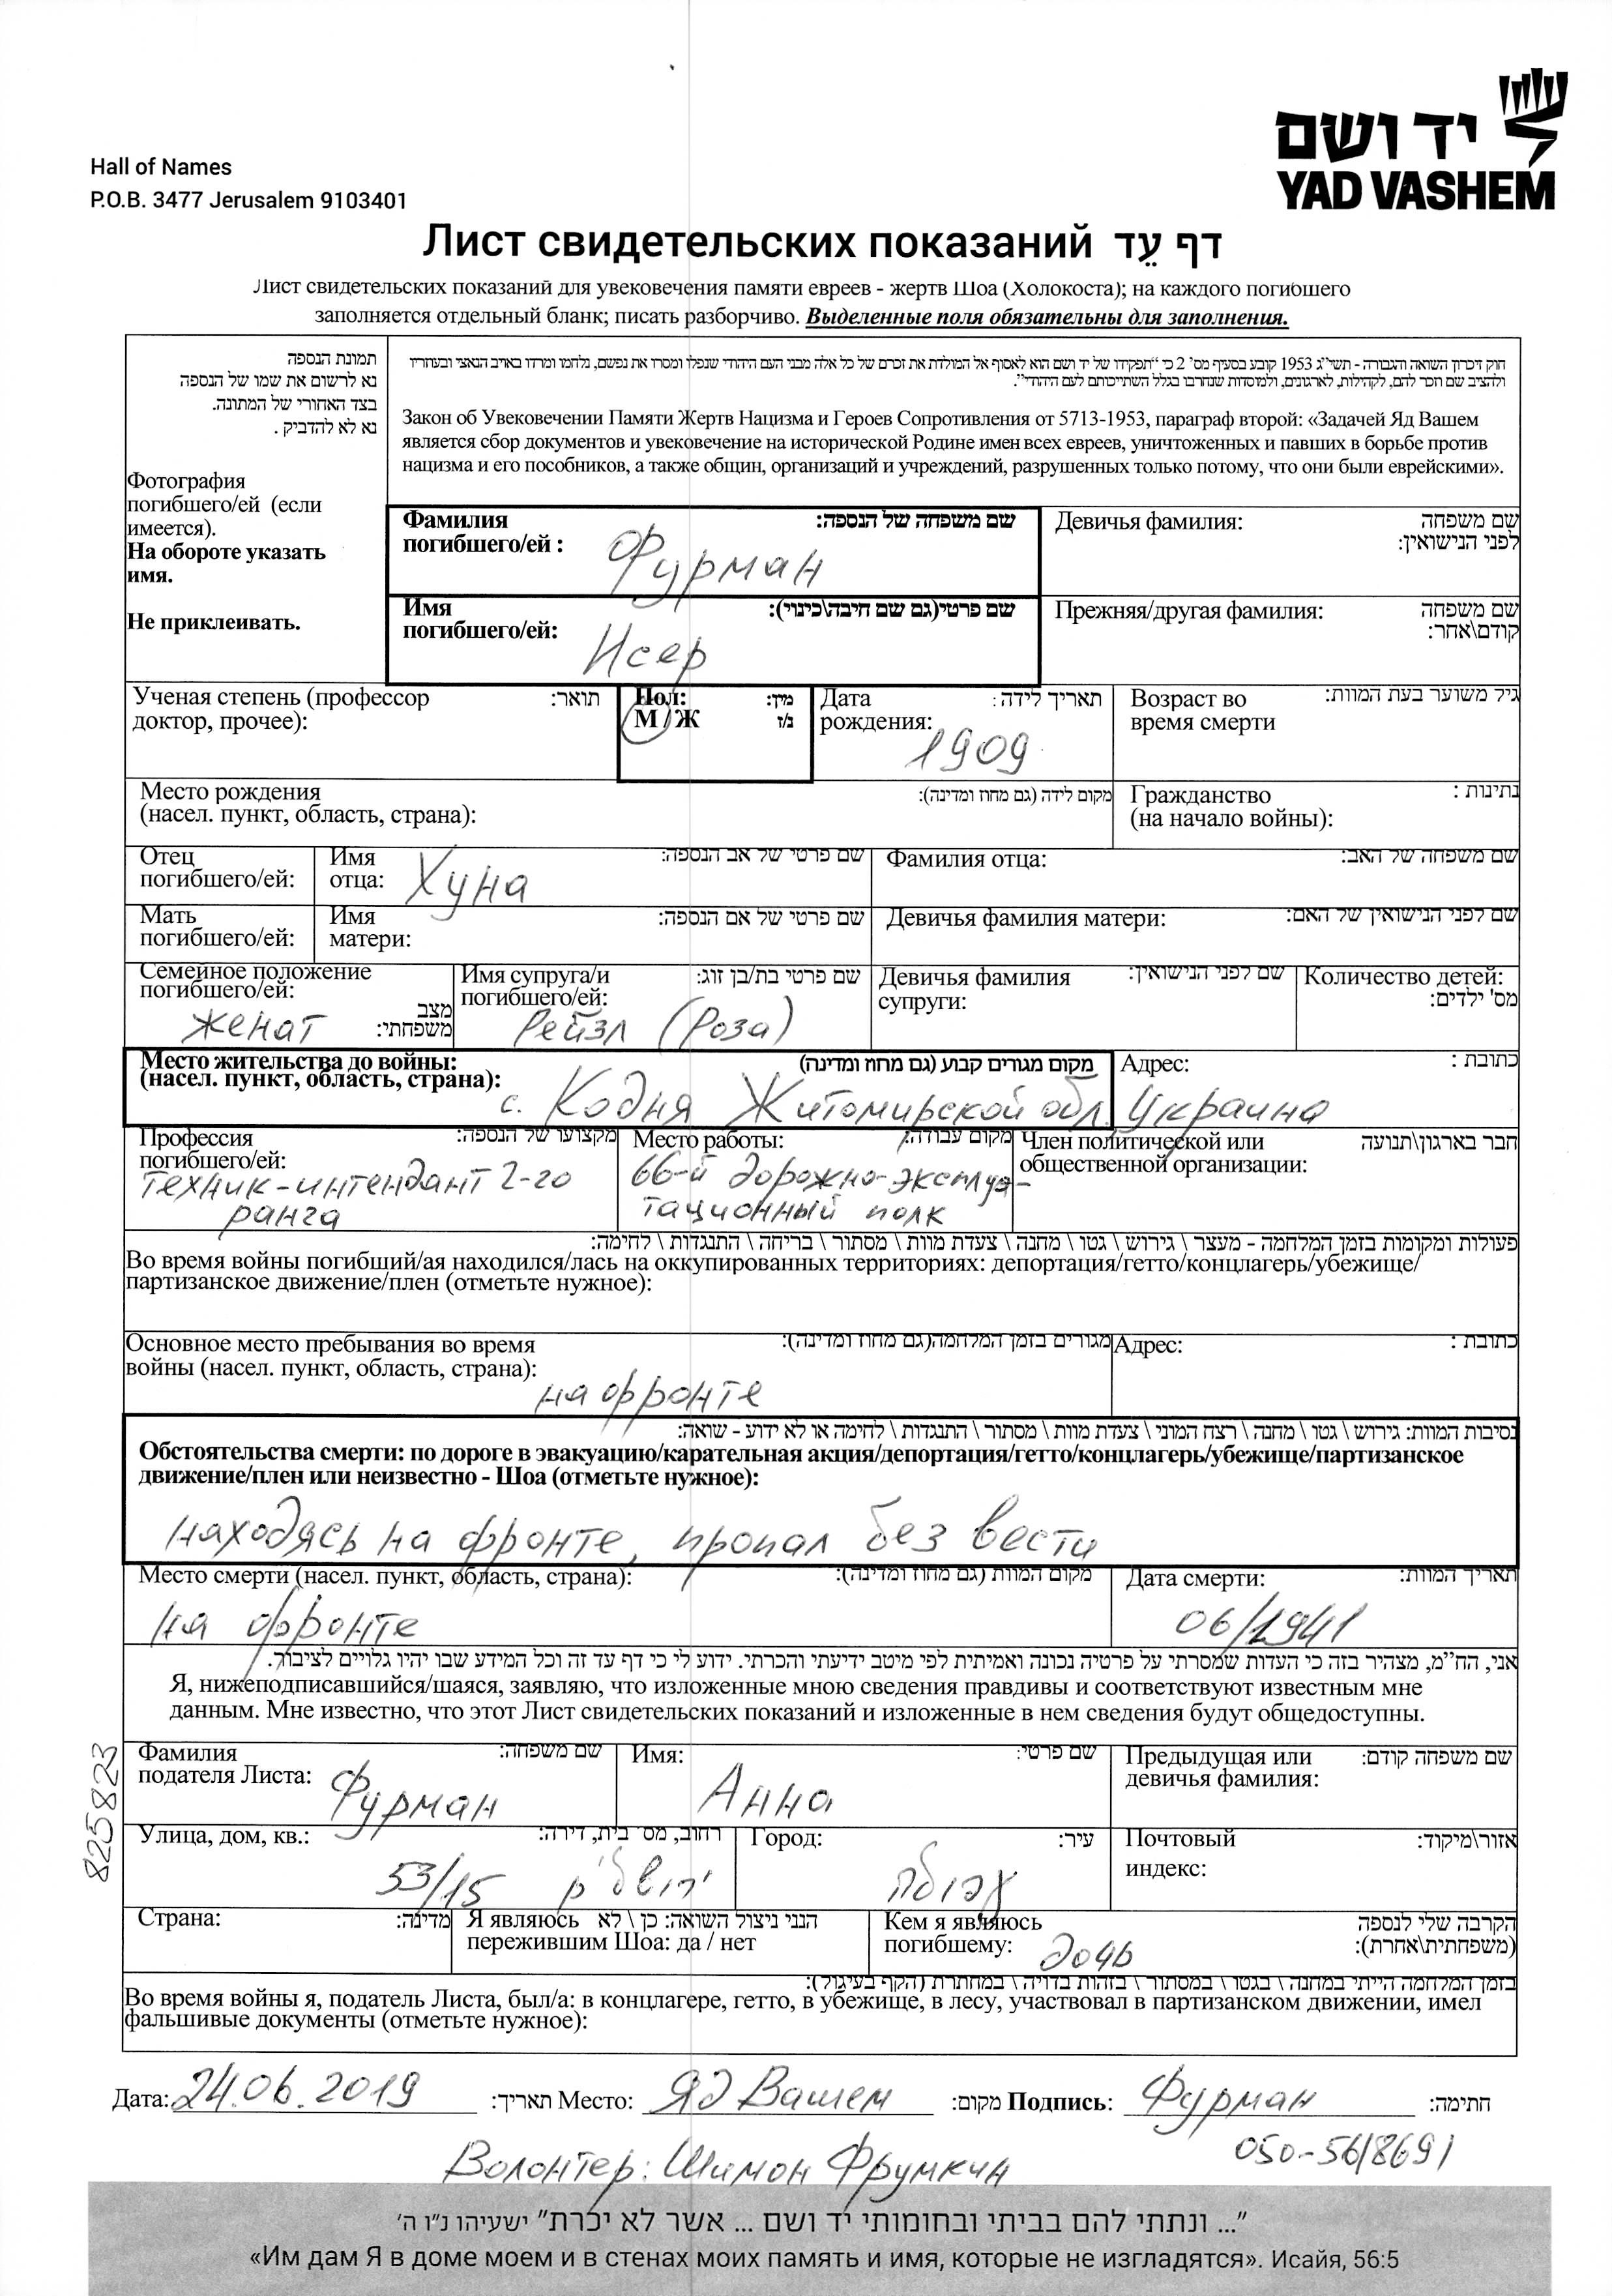 יד ושם
YAD VASHEM
Hall of Names
P.O.B. 3477 Jerusalem 9103401
Лист свидетельских показаний דף עֵד
Лист свидетельских показаний для увековечения памяти евреев - жертв Шоа (Холокоста); на каждого погибшего
заполняется отдельный бланк; писать разборчиво. Выделенные поля обязательны для заполнения.
תמונת הנספה
נא לרשום את שמו של הנספה
בצד האחורי של התמונה.
נא לא להדביק .
Фотография
погибшего/ей (если
имеется).
На обороте указать
имя.
Не приклеивать.
חוק זיכרון השואה והגבורה - תשי"ג 1953 קובע בסעיף מס' 2 כי "תפקידו של יד ושם הוא לאסוף אל המולדת את זכרם של כל אלה מבני העם היהודי שנפלו ומסרו את נפשם, נלחמו ומרדו באויב הנאצי ובעוזריו
ולהציב שם וזכר להם, לקהילות, לארגונים, ולמוסדות שנחרבו בגלל השתייכותם לעם היהודי".
Закон об Увековечении Памяти Жертв Нацизма и Героев Сопротивления от 5713-1953, параграф второй: «Задачей Яд Вашем
является сбор документов и увековечение на исторической Родине имен всех евреев, уничтоженных и павших в борьбе против
нацизма и его пособников, а также общин, организаций и учреждений, разрушенных только потому, что они были еврейскими».
Фамилия שם משפחה של הנספה:
погибшего/ей : Фурман
Девичья фамилия: שם משפחה
לפני הנישואין:
Имя שם פרטי(גם שם חיבה\כינוי):
погибшего/ей: Исер
Прежняя/другая фамилия: שם משפחה
קודם\אחר:
Ученая степень (профессор תואר:
доктор, прочее):
Пол: מין:
М / Ж ז/נ
Дата תאריך לידה :
рождения: 1909
Возраст во גיל משוער בעת המוות:
время смерти
Место рождения מקום לידה (גם מחוז ומדינה):
(насел. пункт, область, страна):
Гражданство נתינות :
(на начало войны):
Отец
погибшего/ей:
Имя שם פרטי של אב הנספה:
отца: Хуна
Фамилия отца: שם משפחה של האב:
Мать
погибшего/ей:
Имя שם פרטי של אם הנספה:
матери:
Девичья фамилия матери: שם לפני הנישואין של האם:
Семейное положение
погибшего/ей: מצב
женат משפחתי:
Имя супруга/и שם פרטי בת/בן זוג:
погибшего/ей:
Рейзл (Роза)
Девичья фамилия שם לפני הנישואין:
супруги:
Количество детей:
מס' ילדים:
Место жительства до войны: מקום מגורים קבוע (גם מחוז ומדינה)
(насел. пункт, область, страна):
с. Кодня Житомирской обл. Украина
Адрес: כתובת :
Профессия מקצועו של הנספה:
погибшего/ей:
техник-интендант 2-го
ранга
Место работы: מקום עבודה:
66-й дорожно-эксплуа-
тационный полк
Член политической или חבר בארגון\תנועה
общественной организации:
פעולות ומקומות בזמן המלחמה - מעצר \ גירוש \ גטו \ מחנה \ צעדת מוות \ מסתור \ בריחה \ התנגדות \ לחימה:
Во время войны погибший/ая находился/лась на оккупированных территориях: депортация/гетто/концлагерь/убежище/
партизанское движение/плен (отметьте нужное):
Основное место пребывания во время מגורים בזמן המלחמה(גם מחוז ומדינה):
войны (насел. пункт, область, страна):
на фронте
Адрес: כתובת :
נסיבות המוות: גירוש \ גטו \ מחנה \ רצח המוני \ צעדת מוות \ מסתור \ התנגדות \ לחימה או לא ידוע - שואה:
Обстоятельства смерти: по дороге в эвакуацию/карательная акция/депортация/гетто/концлагерь/убежище/партизанское
движение/плен или неизвестно - Шоа (отметьте нужное):
находясь на фронте, пропал без вести
Место смерти (насел. пункт, область, страна): מקום המוות (גם מחוז ומדינה):
на фронте
Дата смерти: תאריך המוות:
06/1941
אני, הח"מ, מצהיר בזה כי העדות שמסרתי על פרטיה נכונה ואמיתית לפי מיטב ידיעתי והכרתי. ידוע לי כי דף עד זה וכל המידע שבו יהיו גלויים לציבור.
Я, нижеподписавшийся/шаяся, заявляю, что изложенные мною сведения правдивы и соответствуют известным мне
данным. Мне известно, что этот Лист свидетельских показаний и изложенные в нем сведения будут общедоступны.
825823
Фамилия שם משפחה:
подателя Листа: Фурман
Имя: שם פרטי:
Анна
Предыдущая или שם משפחה קודם:
девичья фамилия:
Улица, дом, кв.: רחוב, מס' בית, דירה:
53/15
Город: עיר:
עפולה
Почтовый אזור\מיקוד:
индекс:
Страна: מדינה:
Я являюсь הנני ניצול השואה: כן \ לא
пережившим Шоа: да / нет
Кем я являюсь הקרבה שלי לנספה
погибшему: дочь (משפחתית\אחרת):
בזמן המלחמה הייתי במחנה \ בגטו \ במסתור \ בזהות בדויה \ במחתרת (הקף בעיגול):
Во время войны я, податель Листа, был/а: в концлагере, гетто, в убежище, в лесу, участвовал в партизанском движении, имел
фальшивые документы (отметьте нужное):
Дата: 24.06.2019 תאריך: Место: Яд Вашем מקום: Подпись: Фурман חתימה:
050-5618691
Волонтер: Шимон Фрумкин
"... ונתתי להם בביתי ובחומותי יד ושם ... אשר לא יכרת" ישעיהו נ"ו ה'
«Им дам Я в доме моем и в стенах моих память и имя, которые не изгладятся». Исайя, 56:5